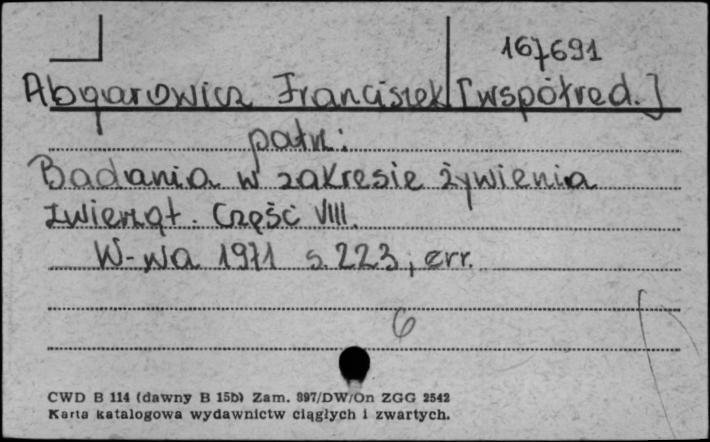 167691
Abgarowicz Franciszek [współred.]
patrz:
Badania w zakresie żywienia
zwierząt. Część VIII.
W-wa 1971 s. 223, err.
6
CWD B 114 (dawny B 15b) Zam. 897/DW/On ZGG 2542
Karta katalogowa wydawnictw ciągłych i zwartych.